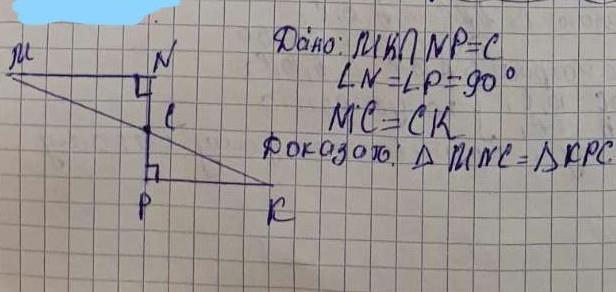 M N
C
P K
Дано: MK∩NP=C
∠N=∠P=90°
MC=CK
Доказать: △MNC=△KPC